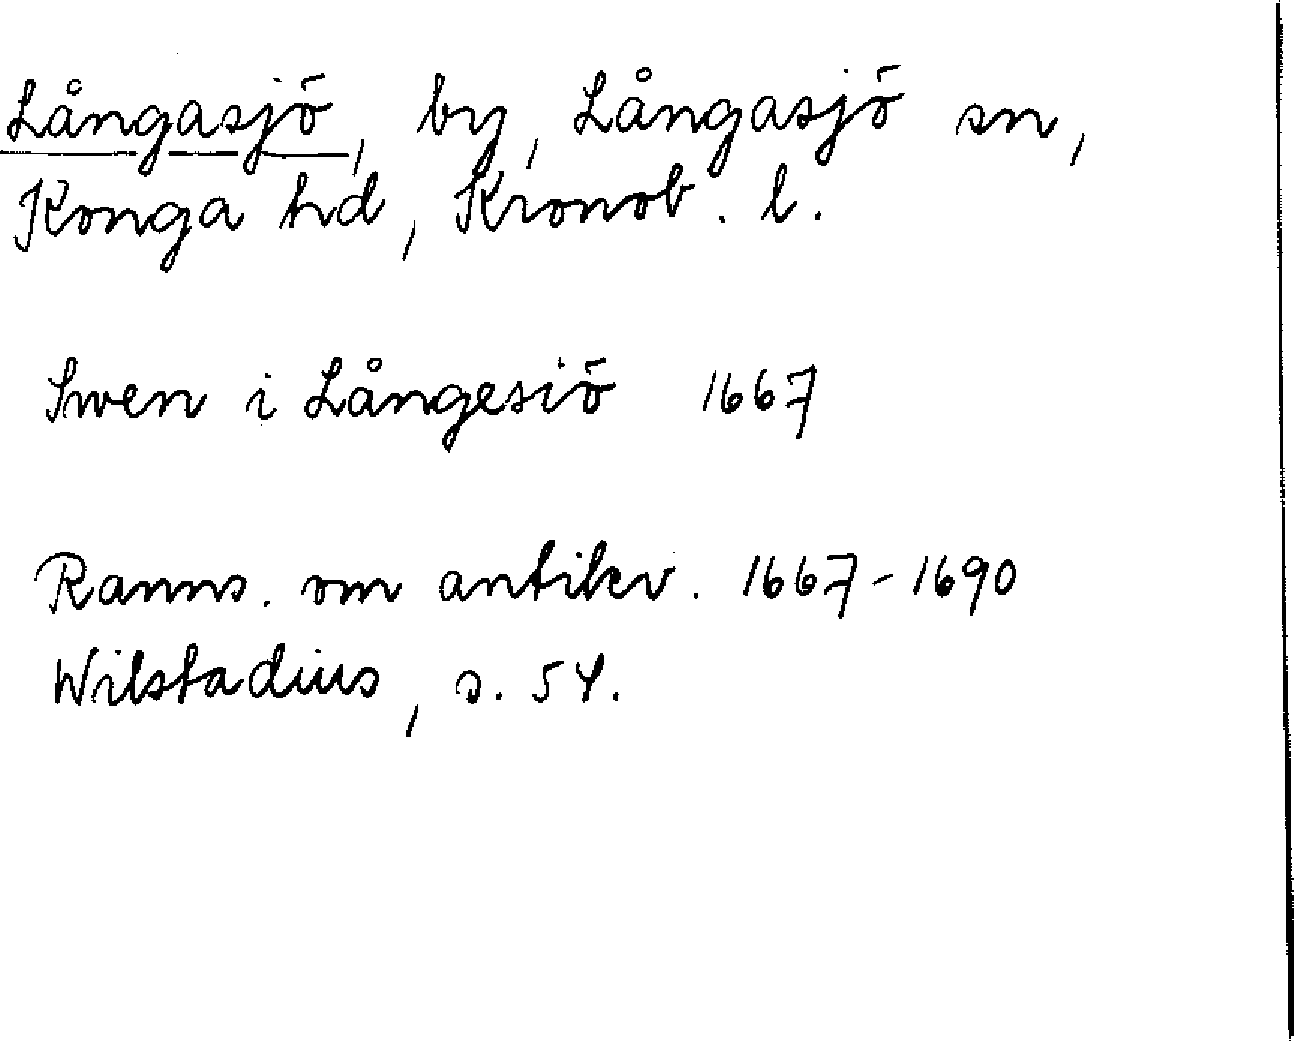 Långasjö, by, Långasjö sn,
Konga hd, Kronob. l.
Swen i Långesiö 1667
Ranns. om antikv. 1667-1690
Wilstadius, s. 54.